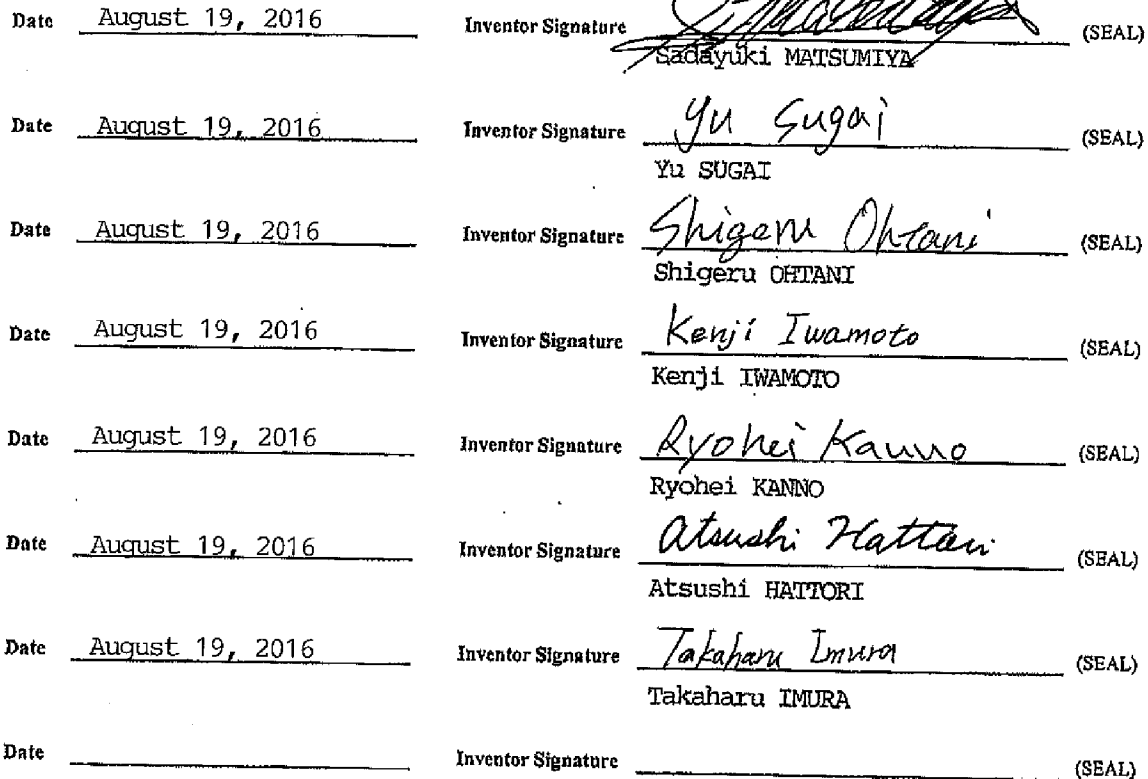 Date August 19, 2016 Inventor Signature (SEAL)
Sadayuki MATSUMIYA
Date August 19, 2016 Inventor Signature Yu Sugai (SEAL)
Yu SUGAI
Date August 19, 2016 Inventor Signature Shigeru Ohtani (SEAL)
Shigeru OHTANI
Date August 19, 2016 Inventor Signature Kenji Iwamoto (SEAL)
Kenji IWAMOTO
Date August 19, 2016 Inventor Signature Ryohei Kanno (SEAL)
Ryohei KANNO
Date August 19, 2016 Inventor Signature Atsushi Hattori (SEAL)
Atsushi HATTORI
Date August 19, 2016 Inventor Signature Takaharu Imura (SEAL)
Takaharu IMURA
Date Inventor Signature (SEAL)